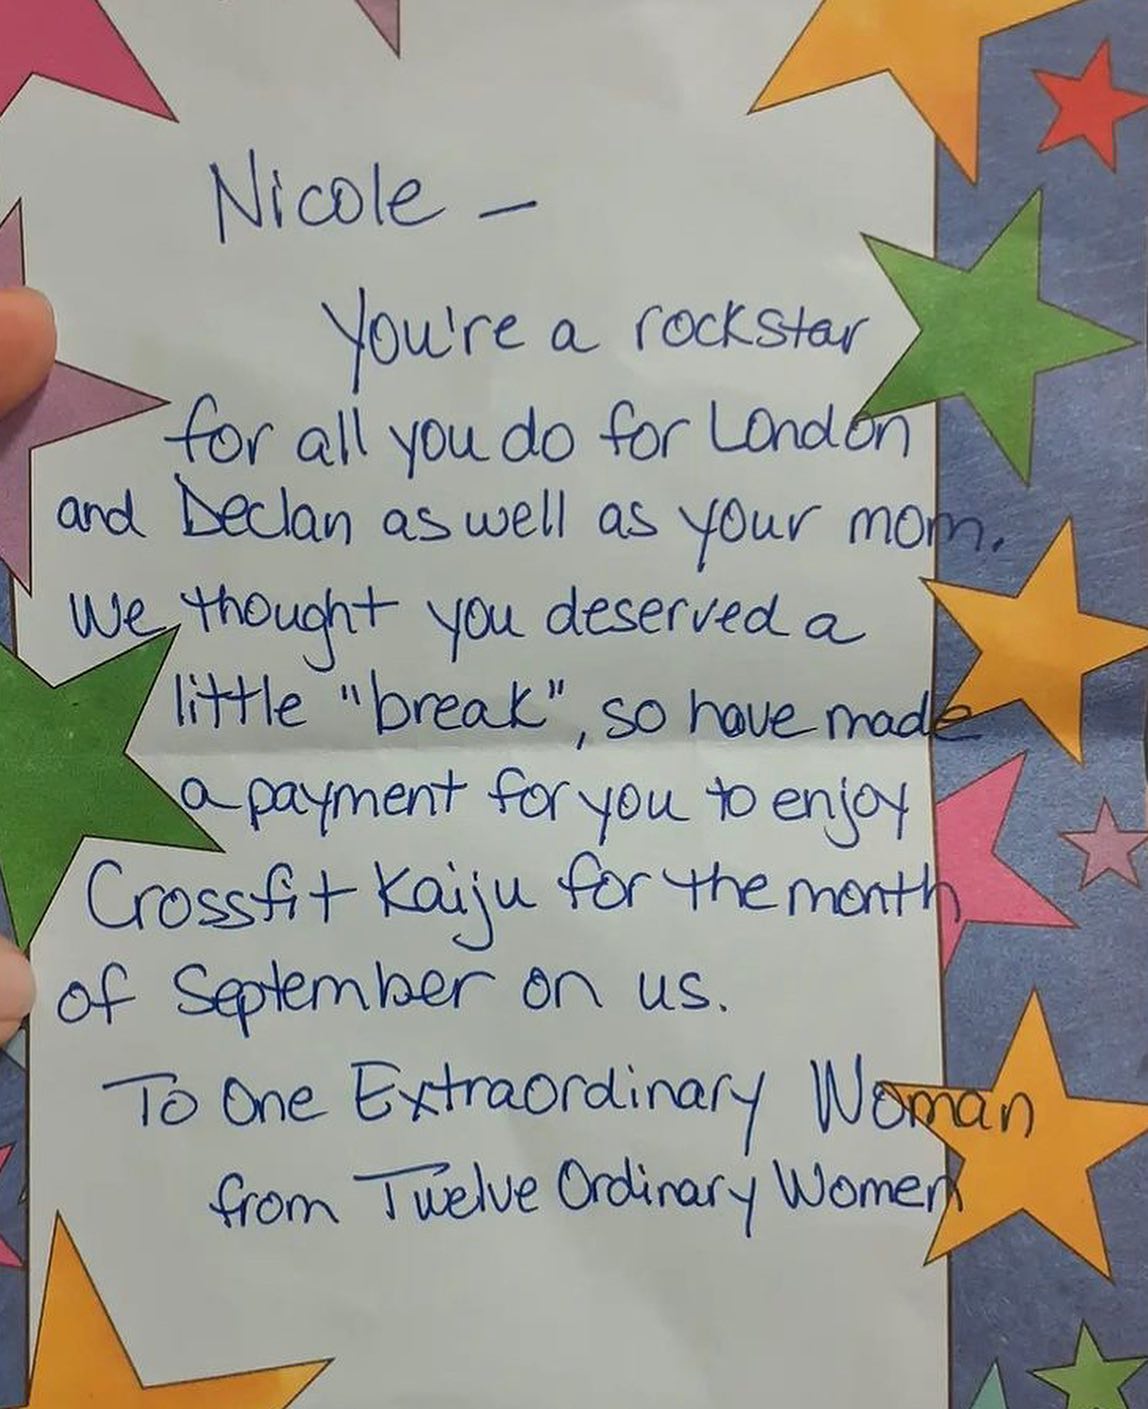 Nicole –
You're a rockstar
for all you do for London
and Declan as well as your mom.
We thought you deserved a
little "break", so have made
a payment for you to enjoy
Crossfit Kaiju for the month
of September on us.
To One Extraordinary Woman
from Twelve Ordinary Women